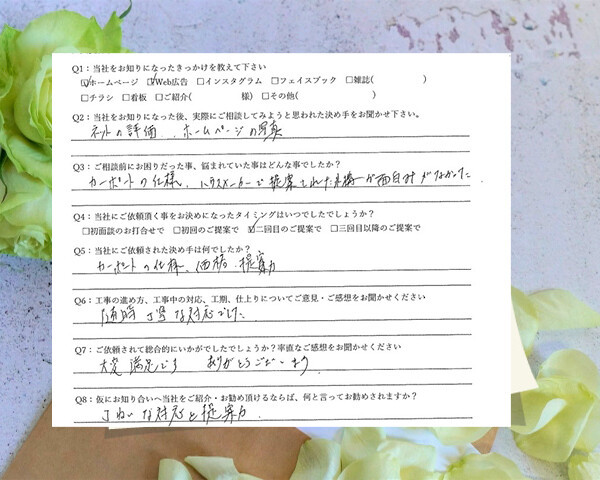 Q1：当社をお知りになったきっかけを教えて下さい
☑ホームページ ☑Web広告 □インスタグラム □フェイスブック □雑誌( )
□チラシ □看板 □ご紹介( 様) □その他( )
Q2：当社をお知りになった後、実際にご相談してみようと思われた決め手をお聞かせ下さい。
ネットの評価、ホームページの写真
Q3：ご相談前にお困りだった事、悩まれていた事はどんな事でしたか？
カーポートの仕様、ハウスメーカーで提案された外構が面白味がなかった。
Q4：当社にご依頼頂く事をお決めになったタイミングはいつでしたでしょうか？
□初面談のお打合せで □初回のご提案で ☑二回目のご提案で □三回目以降のご提案で
Q5：当社に依頼された決め手は何でしたか？
カーポートの仕様、価格、提案力
Q6：工事の進め方、工事中の対応、工期、仕上りについてご意見・ご感想をお聞かせください
丁寧な対応でした。
Q7：ご依頼されて総合的にいかがでしたでしょうか？率直なご感想をお聞かせください
大変満足です ありがとうございます
Q8：仮にお知り合いへ当社をご紹介・お勧め頂けるならば、何と言ってお勧めされますか？
丁ねいな対応と提案力。